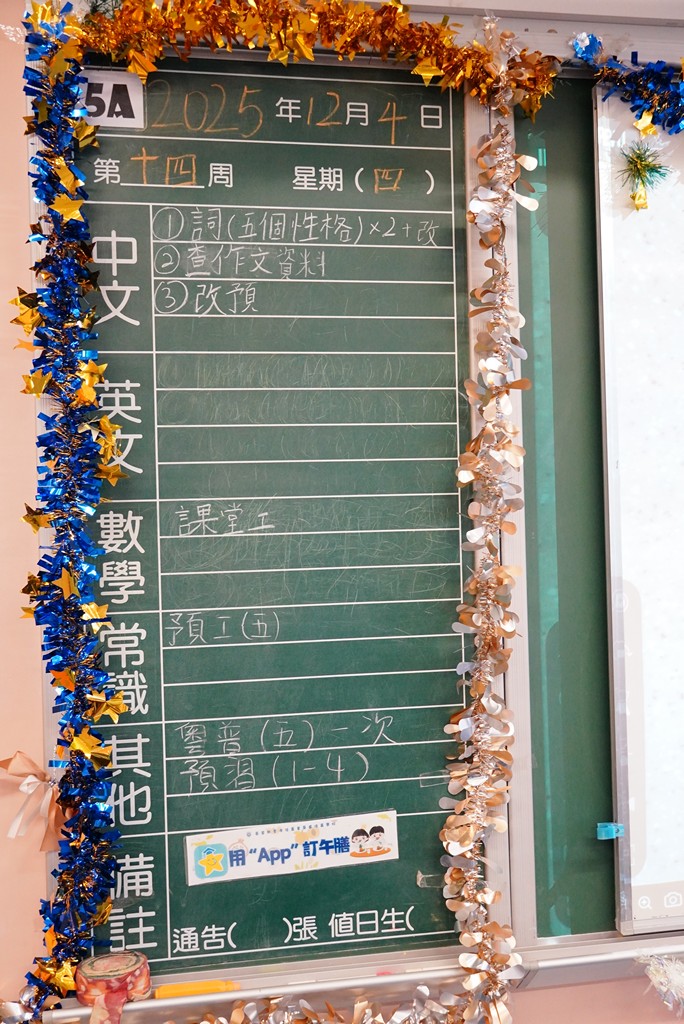 5A 2025年12月4日
第十四周 星期(四)
中文
①詞(五個性格)×2+改
②查作文資料
③改預
英文
數學
課堂工
常識
預工(五)
其他
粵普(五)一次
預習(1-4)
備註
用“App”訂午膳
通告( )張 值日生(